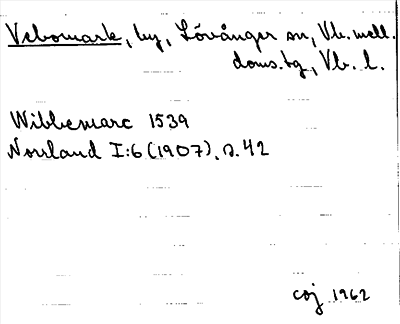 Vebomark, by, Lövånger sn, Vb. mell.
doms.tg., Vb. l.
Wibbemarc 1539
Norrland I:6 (1907), s. 42
coj 1962